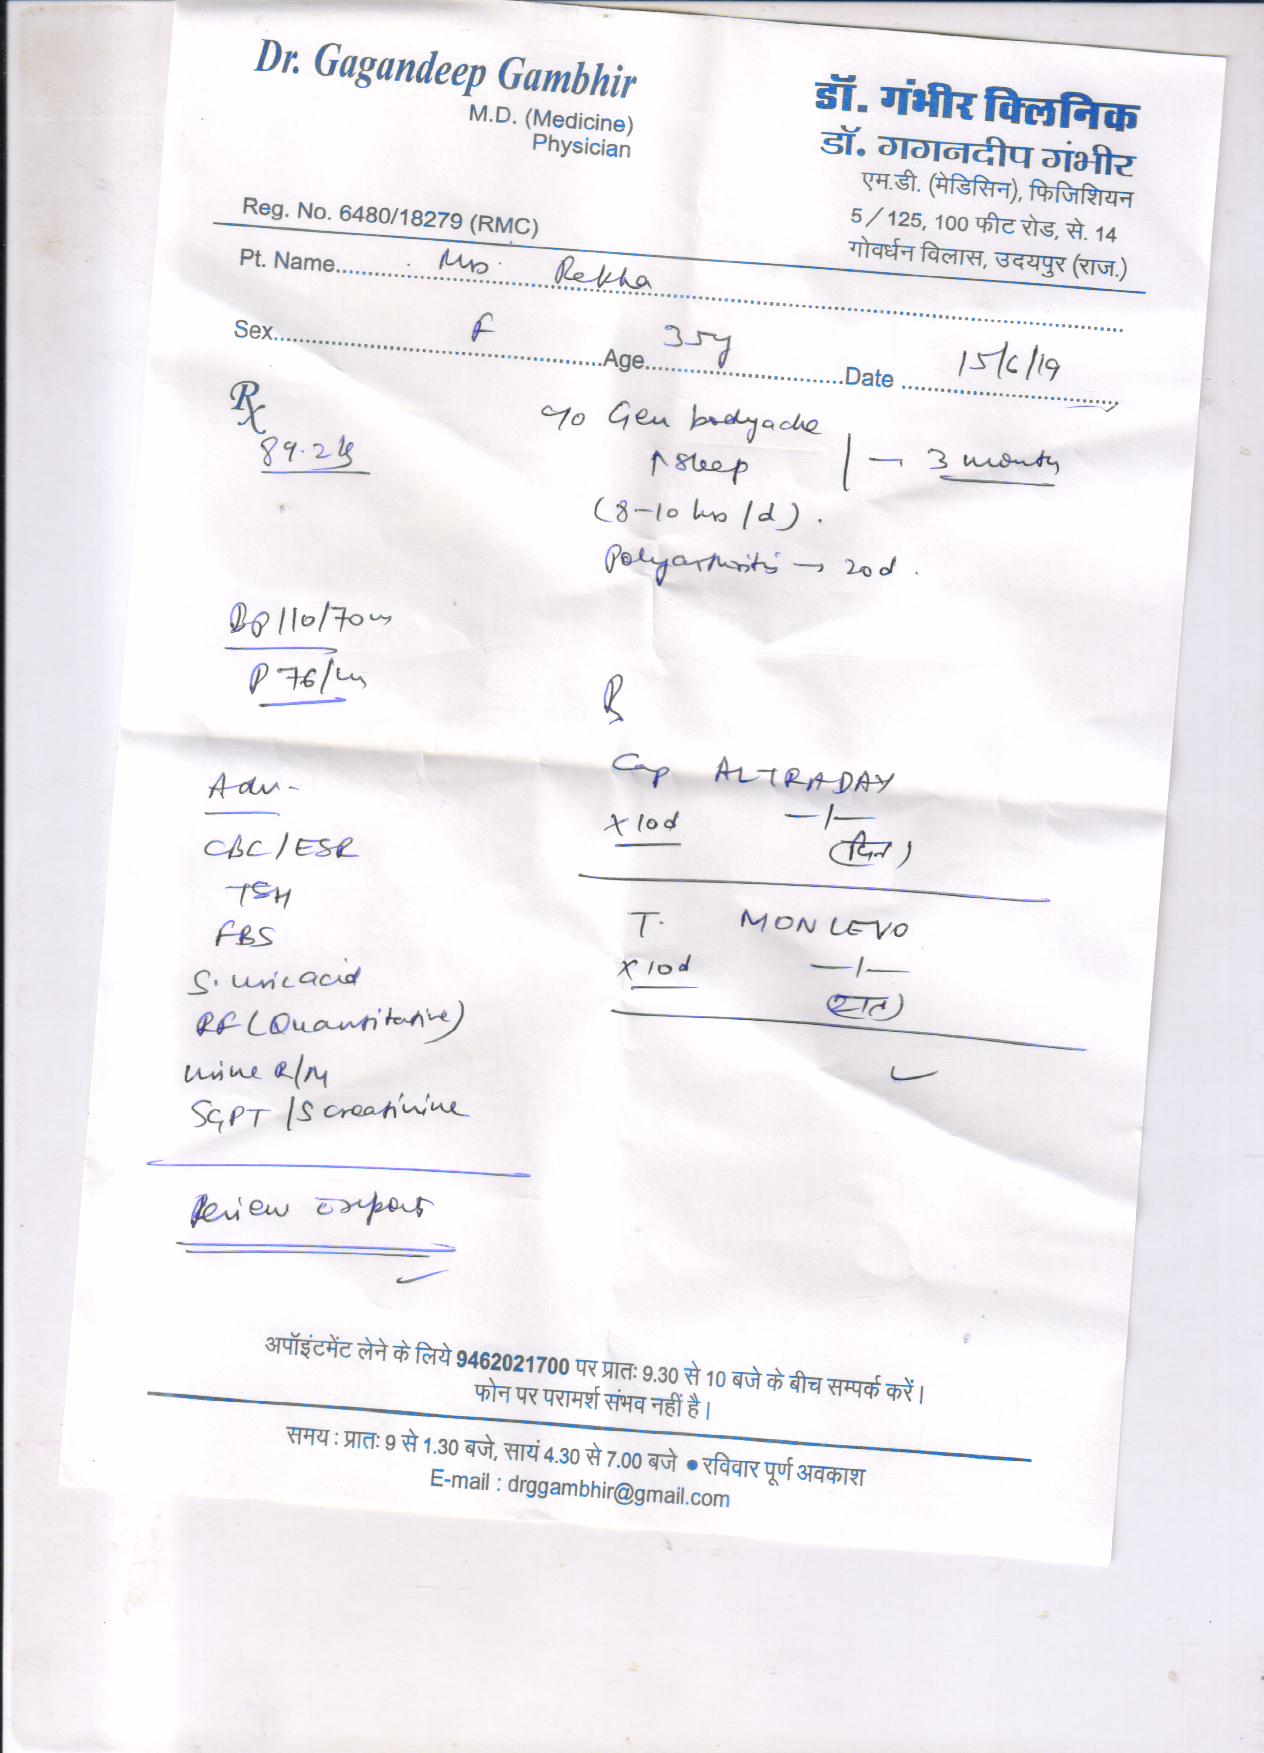 Dr. Gagandeep Gambhir
M.D. (Medicine)
Physician
Reg. No. 6480/18279 (RMC)
डॉ. गंभीर क्लिनिक
डॉ. गगनदीप गंभीर
एम.डी. (मेडिसिन), फिजिशियन
5/125, 100 फीट रोड, से. 14
गोवर्धन विलास, उदयपुर (राज.)
Pt. Name Mrs. Rekha
Sex F Age 35y Date 15/6/19
Rx
89.2 kg
c/o Gen bodyache
↑ sleep — 3 months
(8-10 hrs/d).
Polyarthritis → 20d.
BP 110/70
P 76/m
Rx
Cap ALTRADAY
x 10d —/—
(दिन)
T. MONLEVO
x 10d —/—
(रात)
Adv -
CBC/ESR
TSH
FBS
S. uric acid
RF (Quantitative)
Urine R/M
SGPT / S creatinine
Review c report
अपॉइंटमेंट लेने के लिये 9462021700 पर प्रातः 9.30 से 10 बजे के बीच सम्पर्क करें।
फोन पर परामर्श संभव नहीं है।
समय : प्रातः 9 से 1.30 बजे, सायं 4.30 से 7.00 बजे ● रविवार पूर्ण अवकाश
E-mail : drggambhir@gmail.com